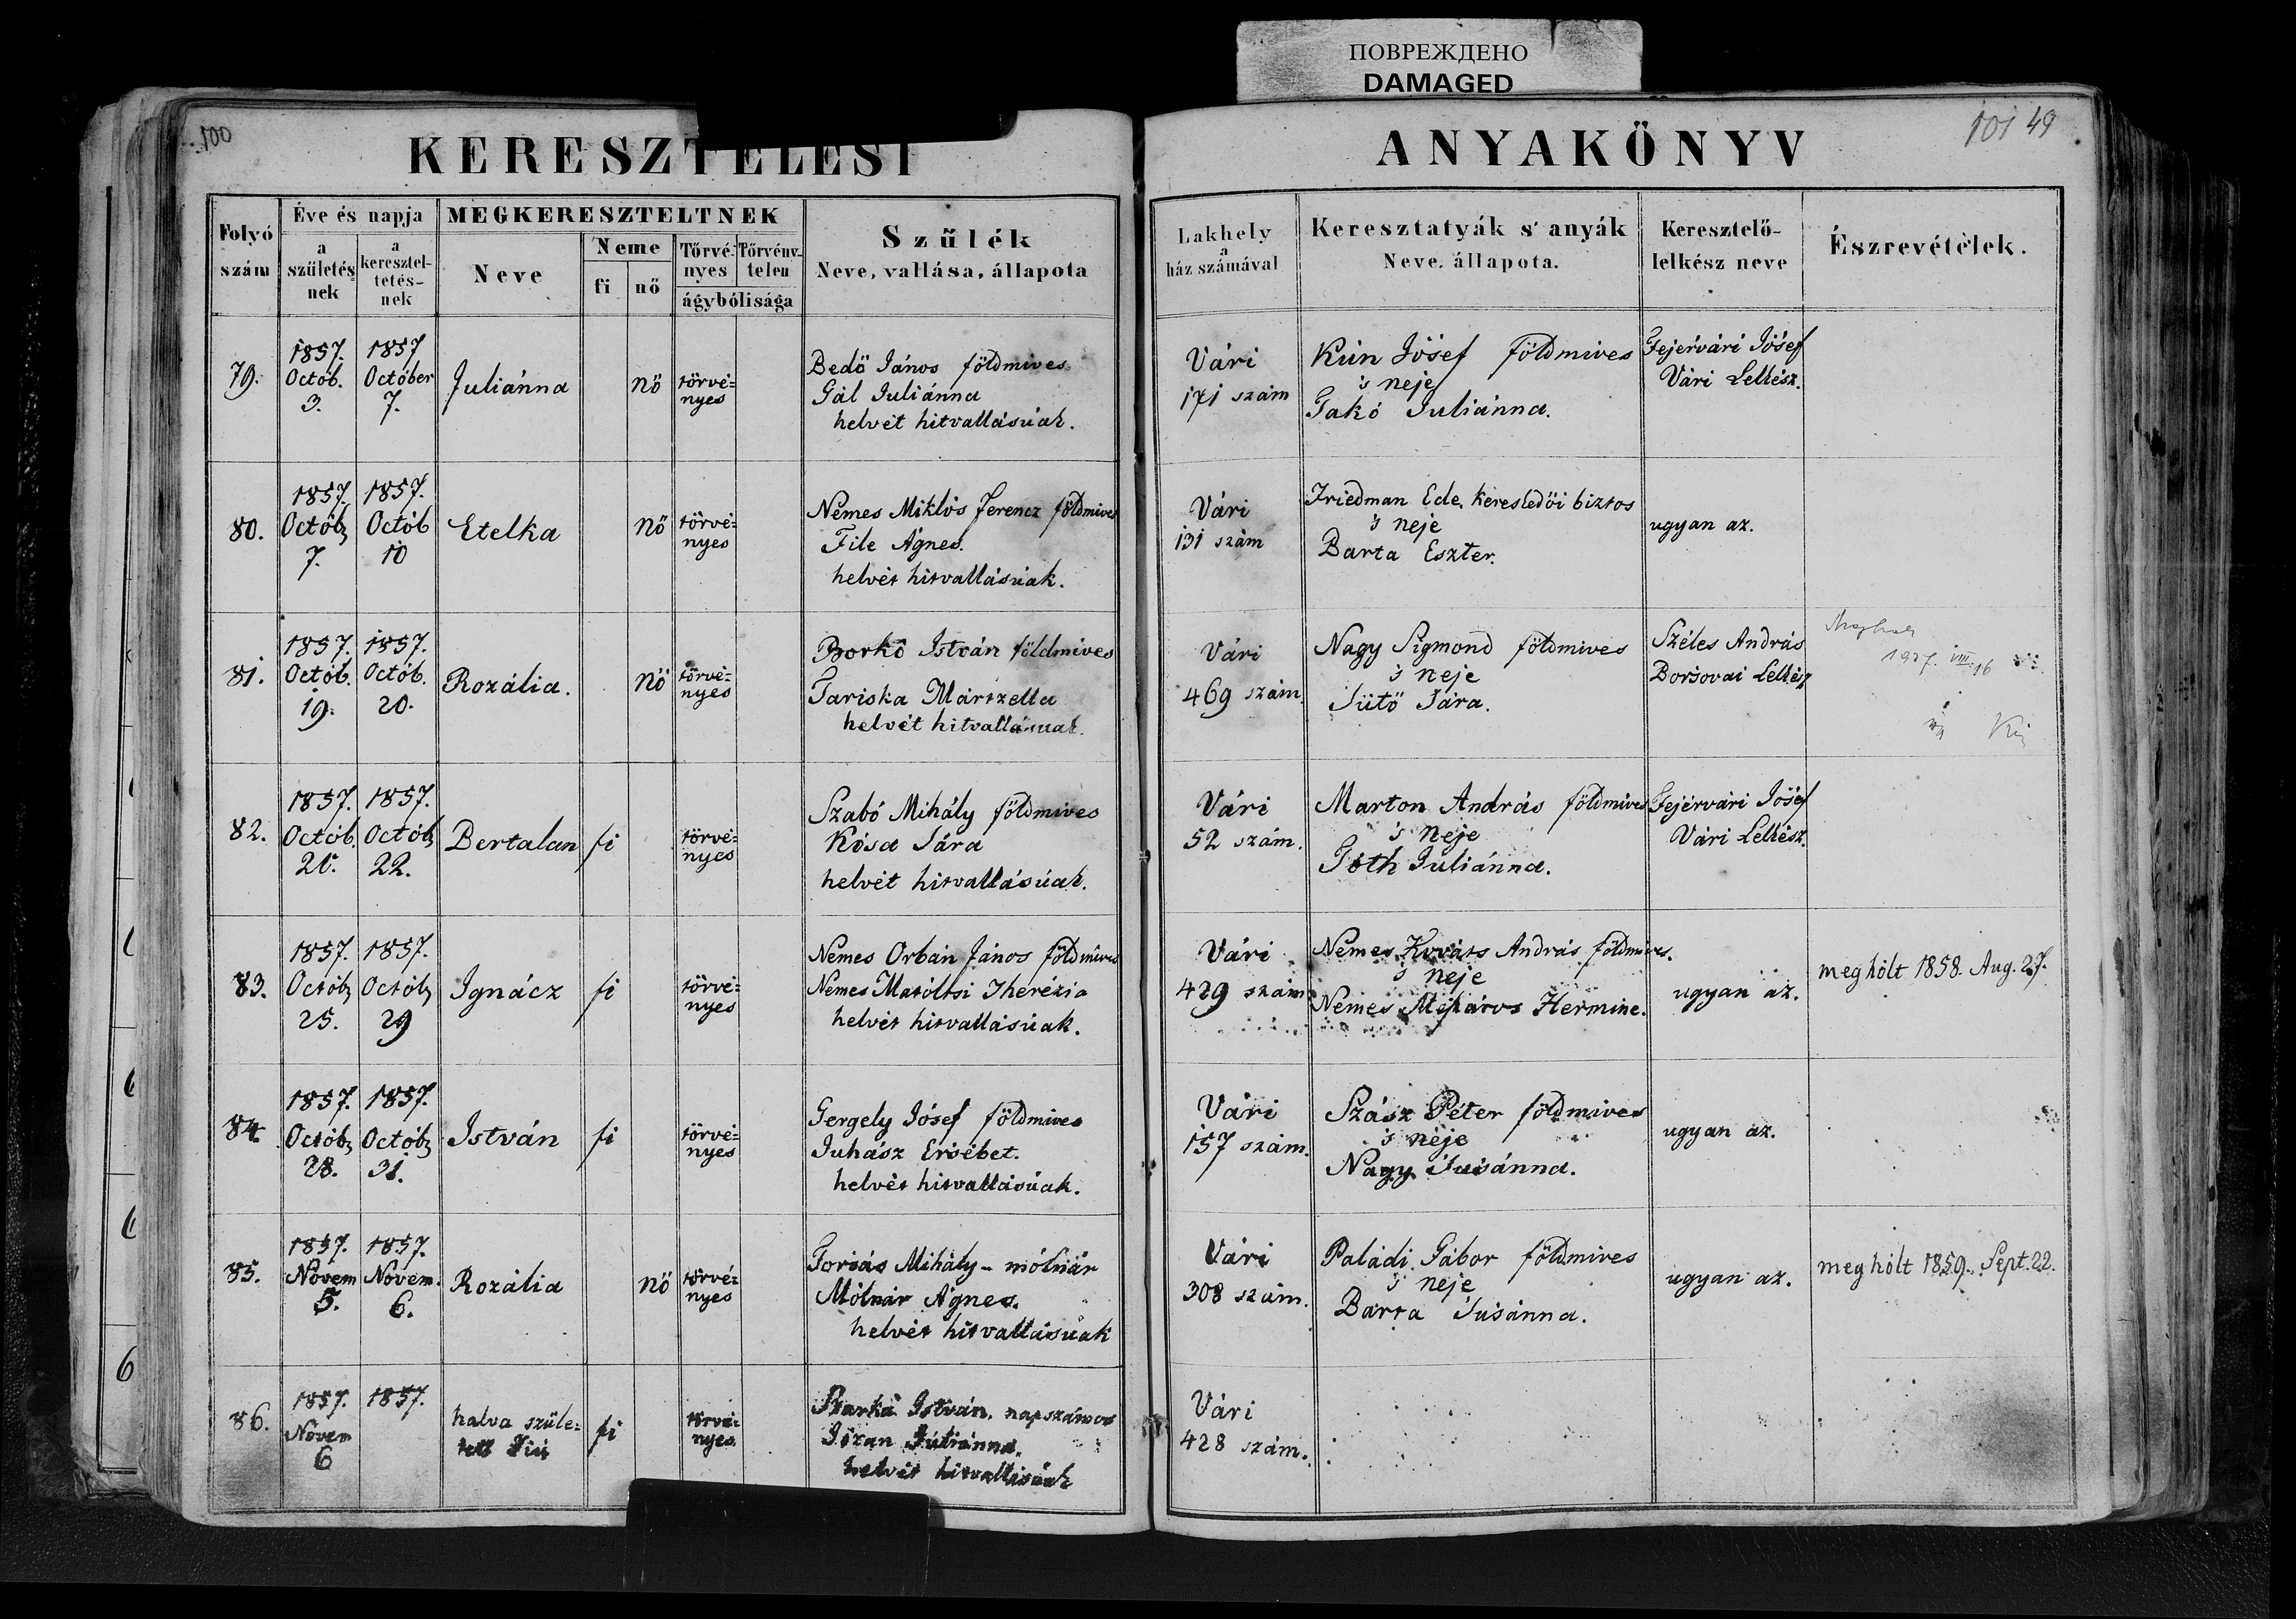 ПОВРЕЖДЕНО
DAMAGED
100
KERESZTELÉSI
ANYAKÖNYV
101 49
Folyó szám
Éve és napja
a születésnek
a kereszteltetésnek
MEGKERESZTELTNEK
Neve
Neme
fi
nő
Törvényes
Törvénytelen
ágybólisága
Szülék
Neve, vallása, állapota
Lakhely
a
ház számával
Keresztatyák s' anyák
Neve, állapota.
Keresztelő-
lelkész neve
Észrevételek.
79.
1857.
Octób.
3.
1857
Octóber
7.
Juliánna
nő
törvé=
nyes
Bedő János földmives
Gál Juliánna
helvét hitvallásúak.
Vári
171 szám
Kún Jósef földmives
's neje
Takó Juliánna.
Fejérvári Jósef
Vári Lelkész.
80.
1857.
Octób
7.
1857.
Octób
10
Etelka
nő
törvé=
nyes
Nemes Miklós Ferencz földmives
File Ágnes.
helvét hitvallásúak.
Vári
131 szám
Friedman Ede, kereskedői biztos
's neje
Barta Eszter.
ugyan az.
81.
1857.
Octób.
19.
1857.
Octób.
20.
Rozália.
nő
törvé=
nyes
Borkó István földmives
Tariska Märtzella
helvét hitvallásuak.
Vári
469 szám.
Nagy Sigmond földmives
's neje
Sütő Sára.
Széles András
Borsovai Lelkész
1937. VIII. 16
82.
1857.
Octób.
21.
1857.
Octób
22.
Bertalan
fi
törvé=
nyes
Szabó Mihály földmives
Kósa Sára
helvét hitvallásúak.
Vári
52 szám.
Marton András földmives
's neje
Tóth Juliánna.
Fejérvári Jósef
Vári Lelkész.
83.
1857.
Octób
25.
1857.
Octób
29
Ignácz
fi
törvé=
nyes
Nemes Orbán János földmives
Nemes Matóltsi Therézia
helvét hitvallásúak.
Vári
429 szám
Nemes Kováts András földmives.
's neje
Nemes Mészáros Hermine.
ugyan az.
meghólt 1858. Aug. 27.
84.
1857.
Octób
28.
1857.
Octób
31.
István
fi
törvé=
nyes
Gergely Jósef földmives
Juhász Ersébet.
helvét hitvallásúak.
Vári
157 szám.
Szász Péter földmives
's neje
Nagy Susánna.
ugyan az.
85.
1857.
Novem
5.
1857.
Novem.
6.
Rozália
nő
törvé=
nyes
Forsás Mihály - mólnár
Mólnár Ágnes.
helvét hitvallásúak
Vári
308 szám.
Paládi Gábor földmives
's neje
Barta Susánna.
ugyan az.
meghólt 1859. Sept. 22.
86.
1857.
Novem
6
1857.
halva szüle=
tett Fiú
fi
törvé=
nyes.
István, napszámos
Juliánna.
helvét hitvallásúak
Vári
428 szám.